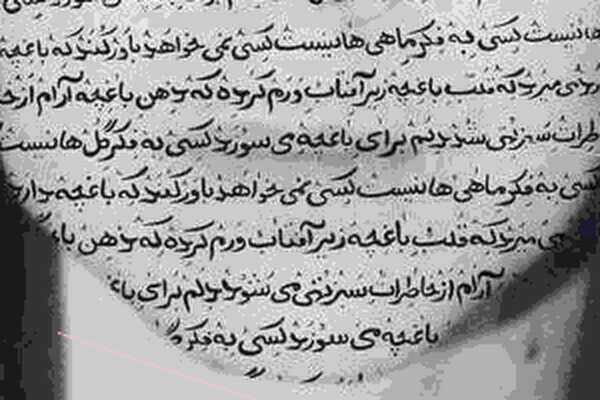 ها نیست کسی به فکر ماهی ها نیست کسی نمی خواهد باور کند که باغچه
می میرد که قلب باغچه زیر آفتاب ورم کرده که ذهن باغچه آرام از خا
طرات سبز تهی میشود دلم برای باغچه می سوزد کسی به فکر گل ها نیست
کسی به فکر ماهی ها نیست کسی نمی خواهد باور کند که باغچه دارد
می میرد که قلب باغچه زیر آفتاب ورم کرده که ذهن باغ
آرام از خاطرات سبز تهی می شود دلم برای باغ
باغچه می سوزد کسی به فکر